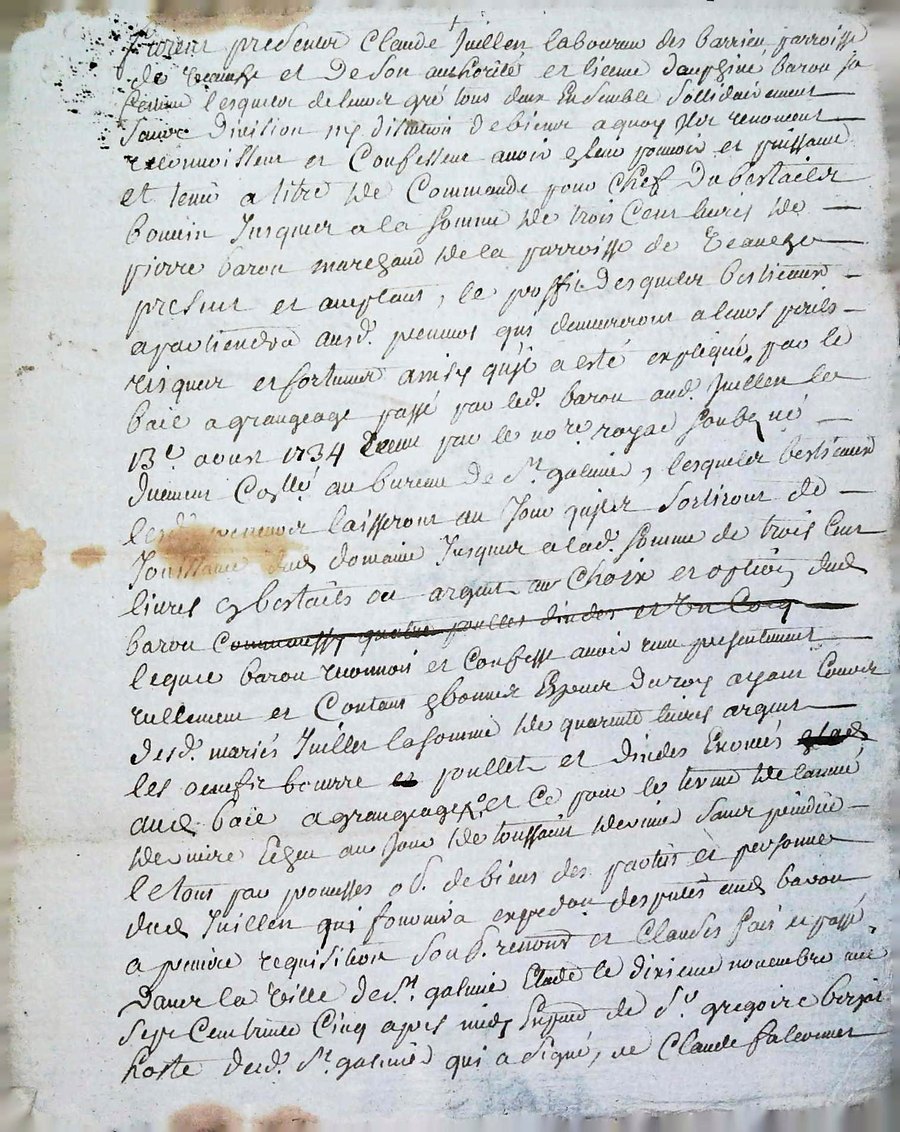 furent presenter Claude Juillen laboureur des barrieu, parroisse
de et De Son authorité et liceme dauphine baron sa
femme lesqueir de leur gré tous deux Ensemble Sollidairement
Sans Division ny distution de bieur a quoy Ilor renoncent
reconnoisseur et Confesseur avoir en leur pouvoir et puissance
et tenir a titre de Commande pour Chef Du bestailer
bouvin Jusquer a la Somme de trois Cent livres de
pierre baron marchand de la parroisse de
present et aceptant, le proffit desqueler bestieaux
apartiendra ausd. preneurs qui demeureront a leurs perils
risquer et fortuner ainsy quil a esté expliqué par le
bail a grangeage passé par led. baron aud. Juillen le
13e. aoust 1734 par le nore. royal Soubzné
Duement Collé au bureau de St. galmier, lesqueler bestieaux
lesd. preneur laisseront au Jour quiler Sortiront de
Jouissance dud. domaine Jusquer a la d. Somme de trois Cent
livres en bestails ou argent au Choix et option dud.
baron quatre poulles dindes et Un Cocq
lequel baron reconnois et Confesse avoir receu presentement
reellement et Contant en bonner Especer Du roy ayant Couvir
desd. mariés Juillen la Somme de quarente livres argent
les oeufir beurre et poullet et dindes Enoncés
aud. bail a grangeage, et Ce pour le terme de lannée
derniere Echeu au Jour de toussaint dernier Sans prejudice
le tout par promesses od. de bieur des parties et personner
dud. Juillen qui fournira expedon. des putes. aud. baron
a premiere requisition Soub. renond. et Clauser fait et passé
Danr la Ville de St. galmier Etude le dixieme novembre mil
Sept Cent trente Cinq apres midy presend de Sr. gregoire
hoste dud. St. galmier qui a Signé, de Claude falconnet